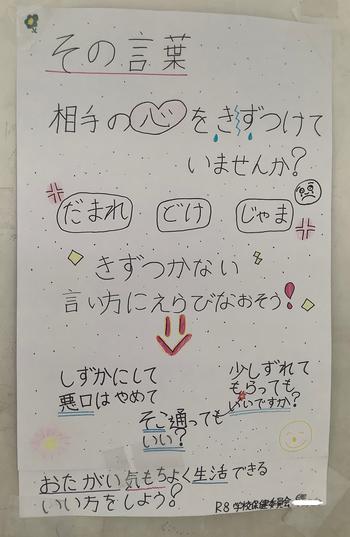 その言葉
相手の心をきずつけて
いませんか?
だまれ どけ じゃま
きずつかない
言い方にえらびなおそう!
しずかにして
悪口はやめて
そこ通っても
いい?
少しずれて
もらっても
いいですか?
おたがい気もちよく生活できる
いい方をしよう?
R8 学校保健委員会